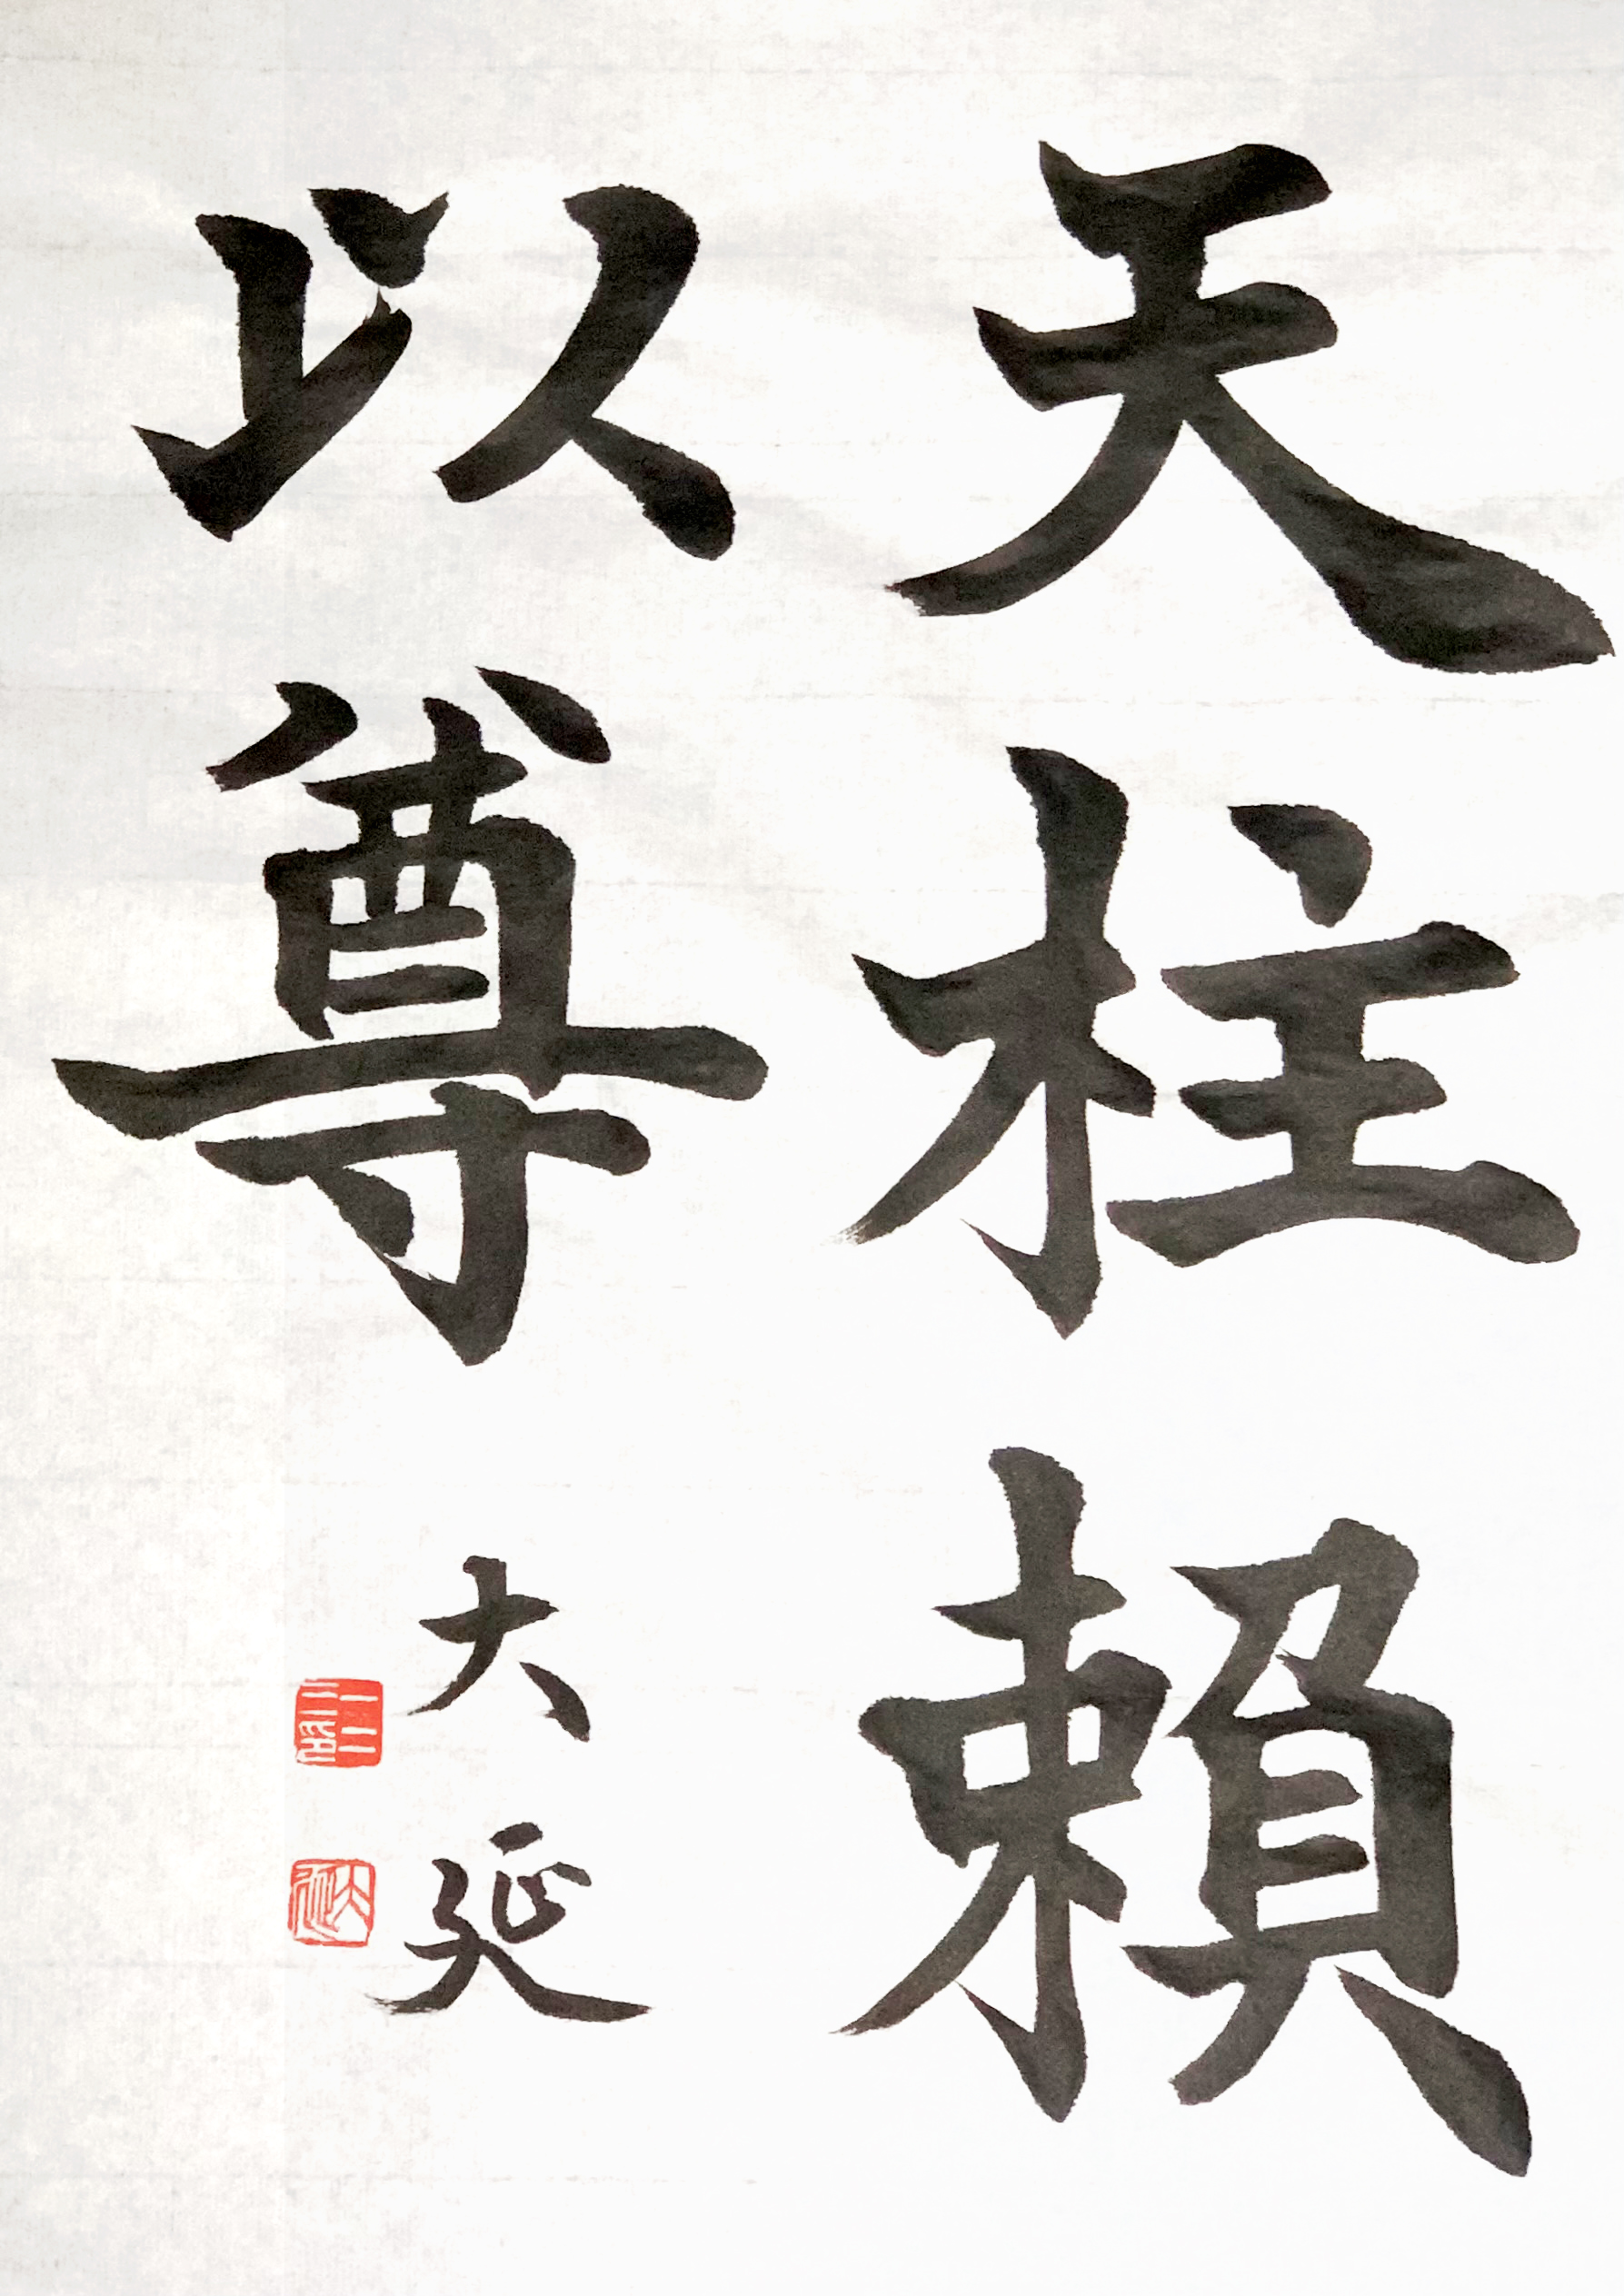 天柱賴
以尊
大延